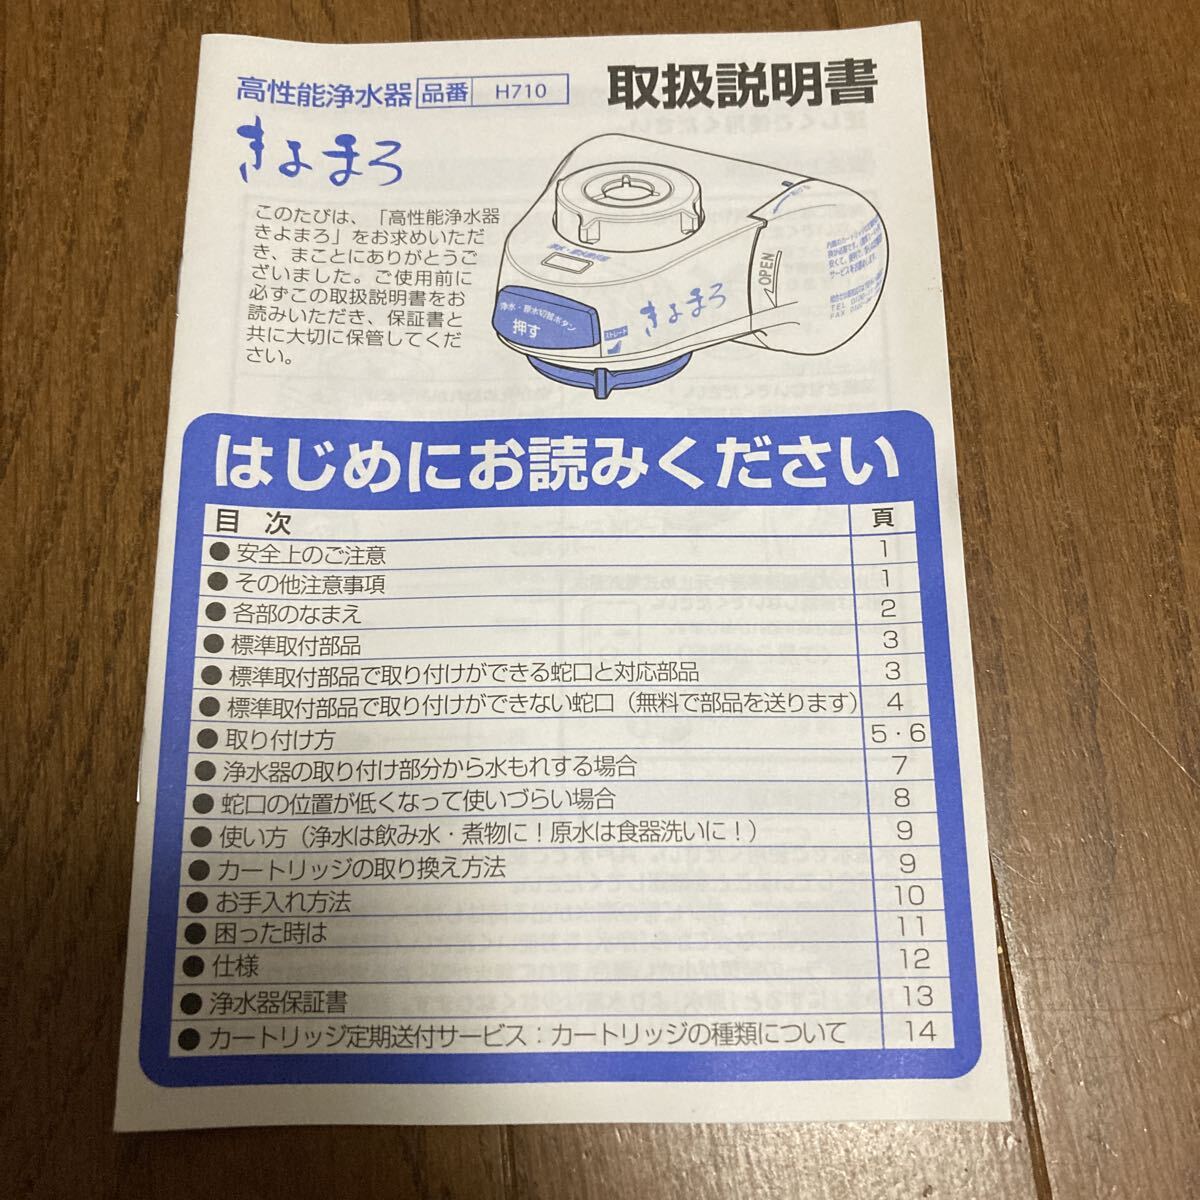 高性能浄水器 品番 H710
取扱説明書
きよまろ
このたびは、「高性能浄水器
きよまろ」をお求めいただ
き、まことにありがとうご
ざいました。ご使用前に
必ずこの取扱説明書をお
読みいただき、保証書と
共に大切に保管してくだ
さい。
浄水・原水切替ボタン
押す
ストレート
きよまろ
OPEN
はじめにお読みください
目 次 頁
●安全上のご注意 1
●その他注意事項 1
●各部のなまえ 2
●標準取付部品 3
●標準取付部品で取り付けができる蛇口と対応部品 3
●標準取付部品で取り付けができない蛇口（無料で部品を送ります） 4
●取り付け方 5・6
●浄水器の取り付け部分から水もれする場合 7
●蛇口の位置が低くなって使いづらい場合 8
●使い方（浄水は飲み水・煮物に！原水は食器洗いに！） 9
●カートリッジの取り換え方法 9
●お手入れ方法 10
●困った時は 11
●仕様 12
●浄水器保証書 13
●カートリッジ定期送付サービス：カートリッジの種類について 14